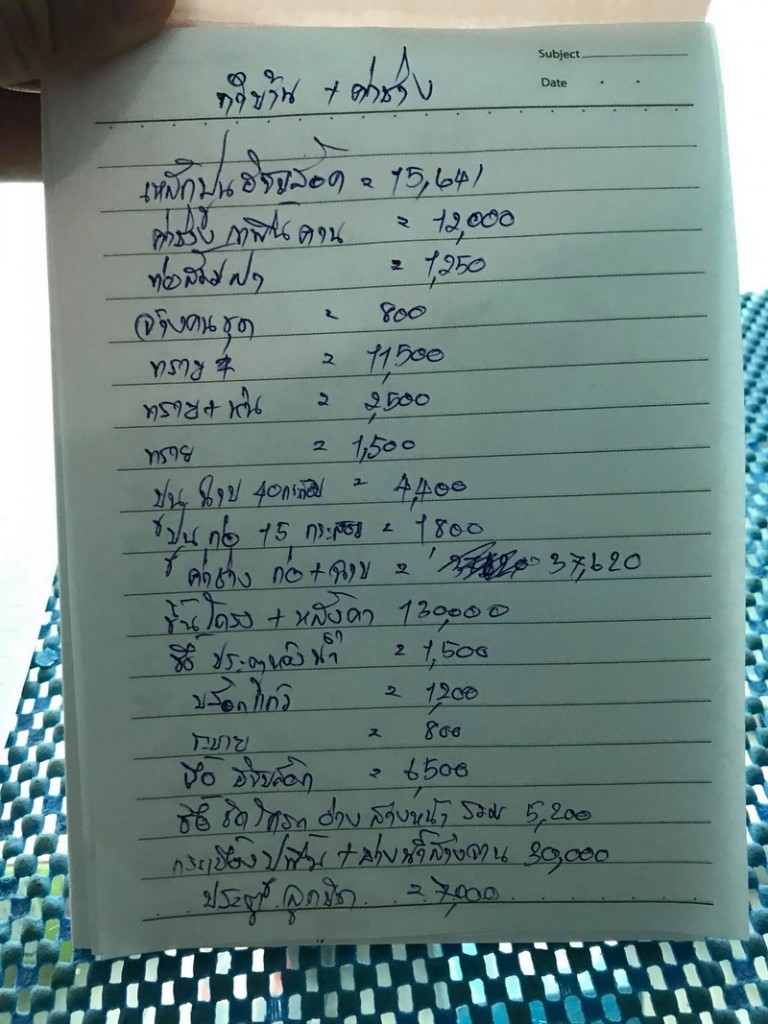 Subject
Date
ทำบ้าน + ค่าช่าง
เหล็กปูนอิฐบล็อค = 15,641
ค่าช่าง เทพื้น คาน = 12,000
ท่อส้วม ฝา = 1,250
จ้างคนขุด = 800
ทราย = 11,500
ทราย + หิน = 2,500
ทราย = 1,500
ปูน ฉาบ 40 กระสอบ = 4,400
ปูน ก่อ 15 กระสอบ = 1,800
ค่าช่าง ก่อ + ฉาบ = 37,620
ขึ้นโครง + หลังคา 130,000
ซื้อ ประตูห้องน้ำ = 1,500
บล็อกแก้ว = 1,200
ระบาย = 800
ซื้อ อิฐบล็อก = 6,500
ซื้อ ชักโครก อ่าง ล้างหน้า รวม 5,200
กระเบื้อง ปูพื้น + อ่างน้ำล้างจาน 30,000
ประตู ลูกบิด = 7,000